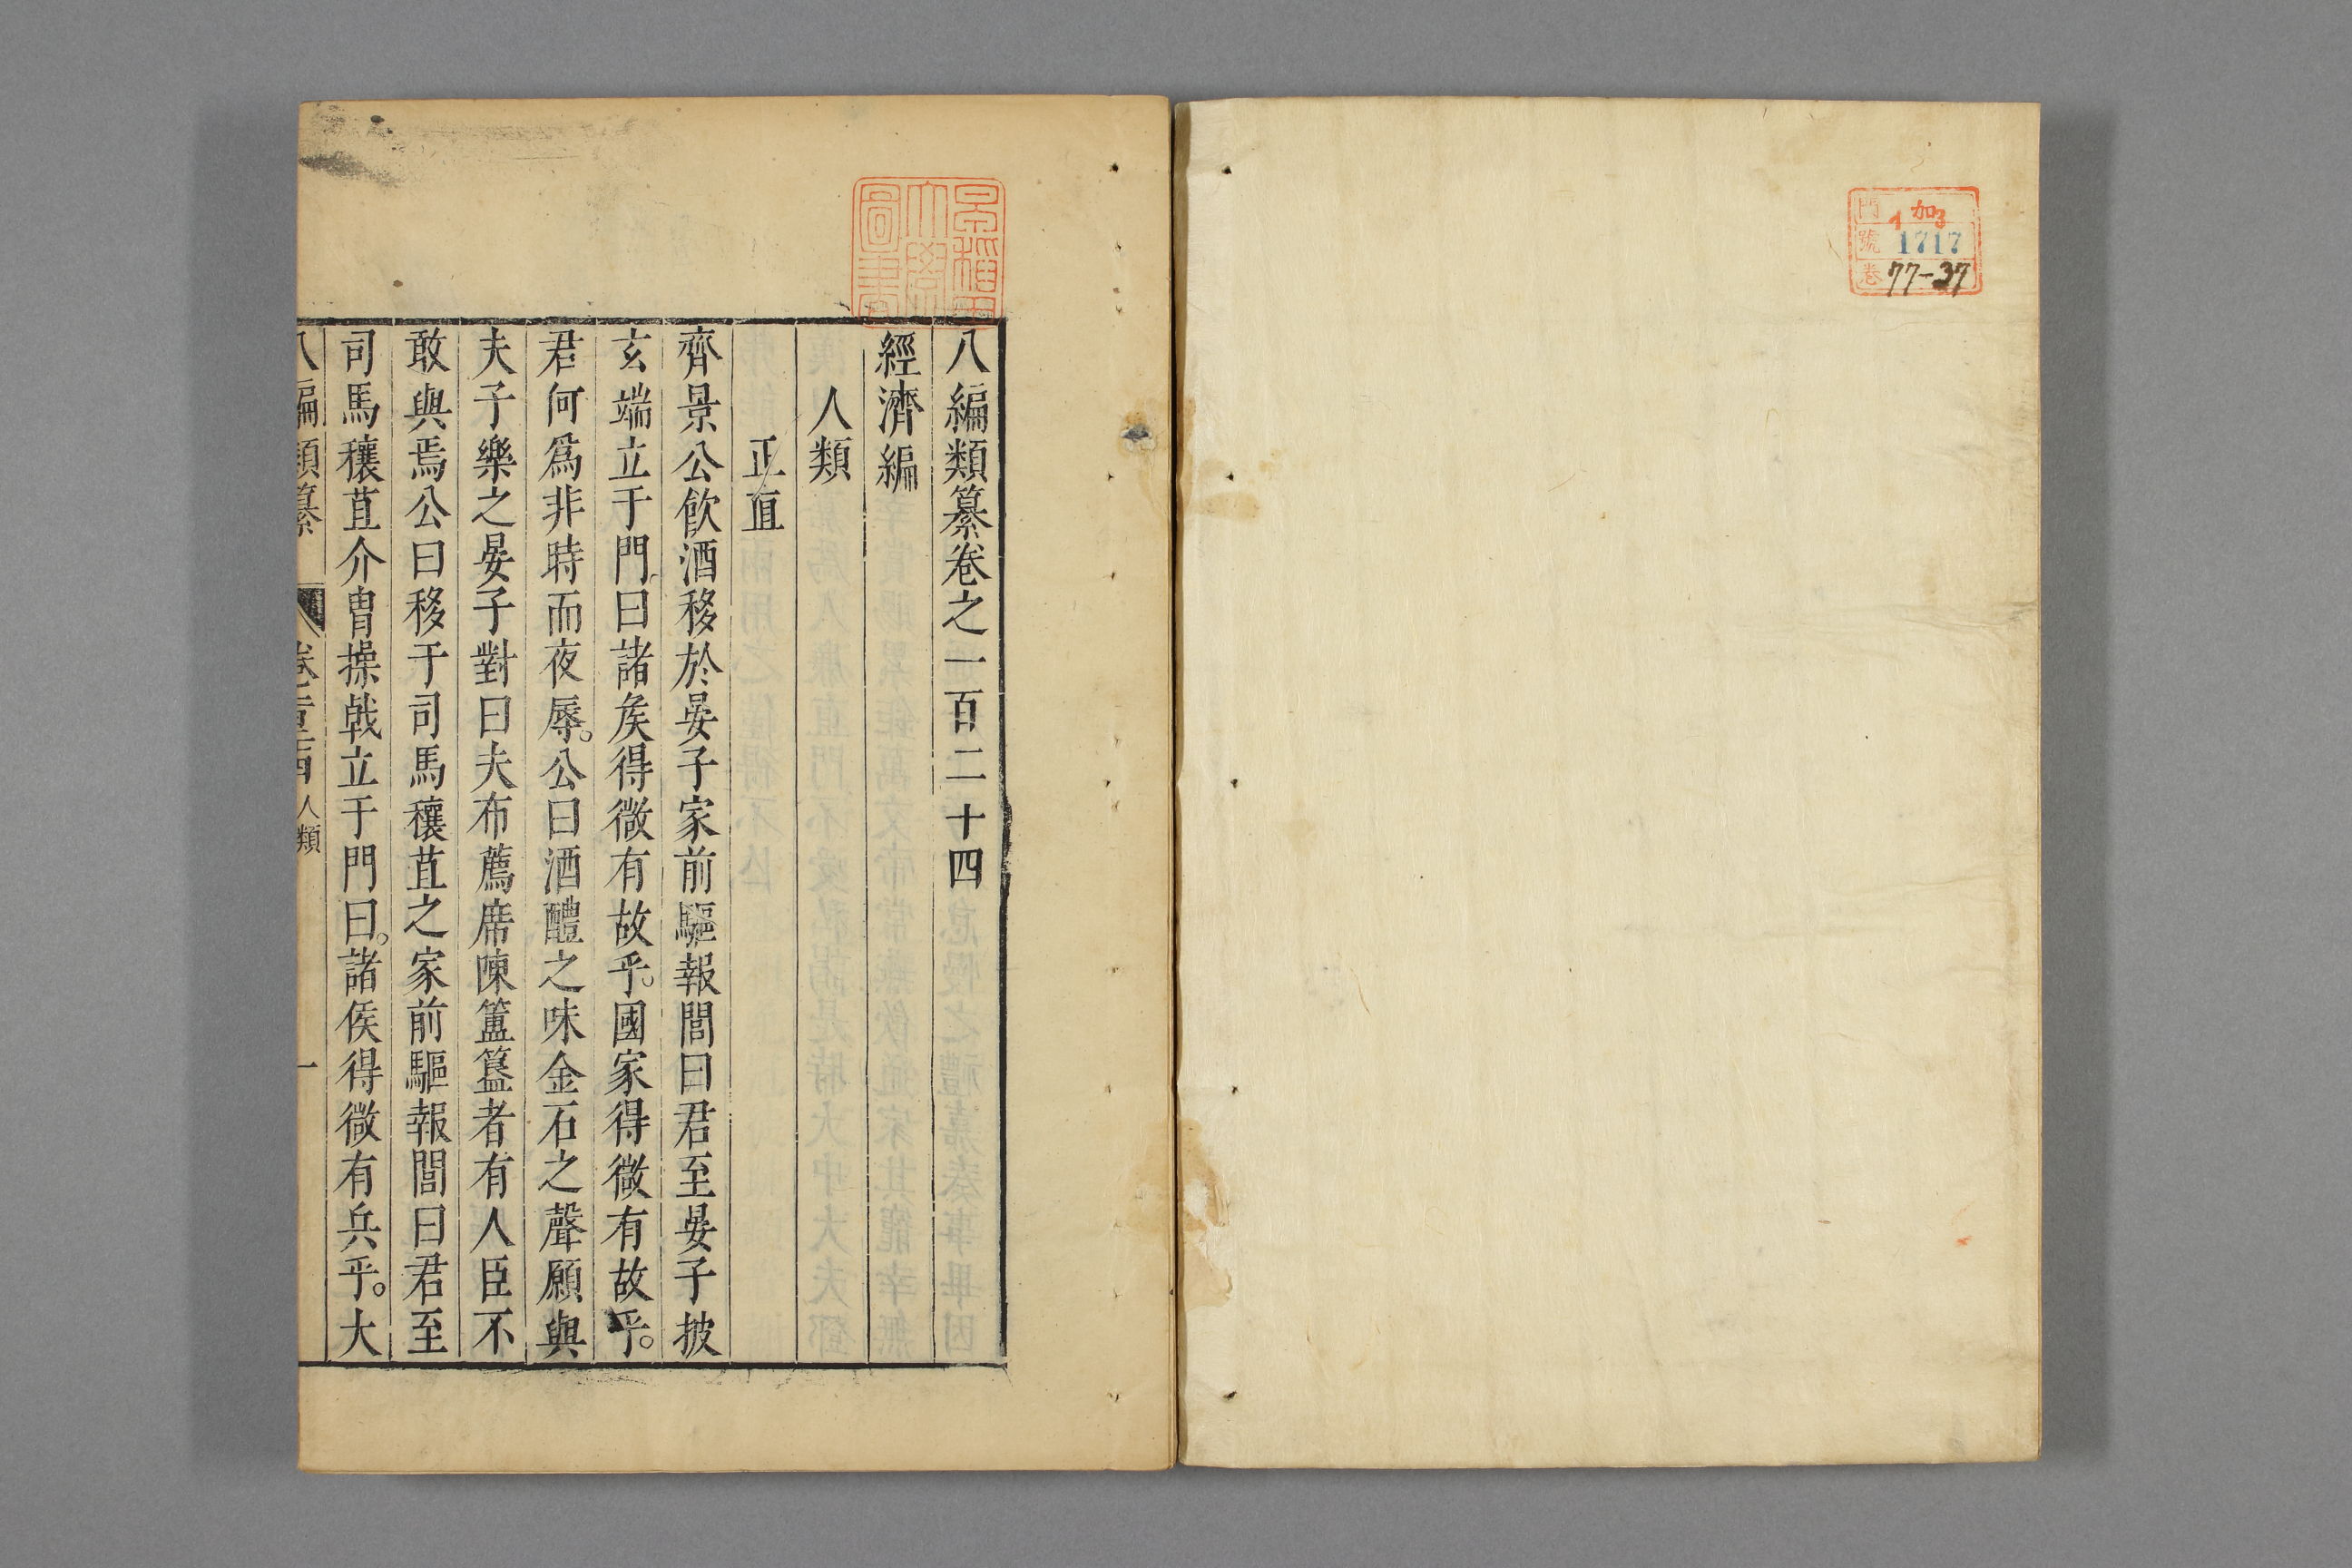 門 加3
號 1717
卷 77-37
早稻田大學圖書
八編類纂卷之一百二十四
經濟編
人類
正直
齊景公飲酒移於晏子家前驅報閭曰君至晏子披
玄端立于門曰諸矦得微有故乎。國家得微有故乎。
君何爲非時而夜辱。公曰酒醴之味金石之聲願與
夫子樂之晏子對曰夫布薦席陳簠簋者有人臣不
敢與焉公曰移于司馬穰苴之家前驅報閭曰君至
司馬穰苴介胄操戟立于門曰。諸侯得微有兵乎。大
八編類纂 卷一百二十四 人類 一